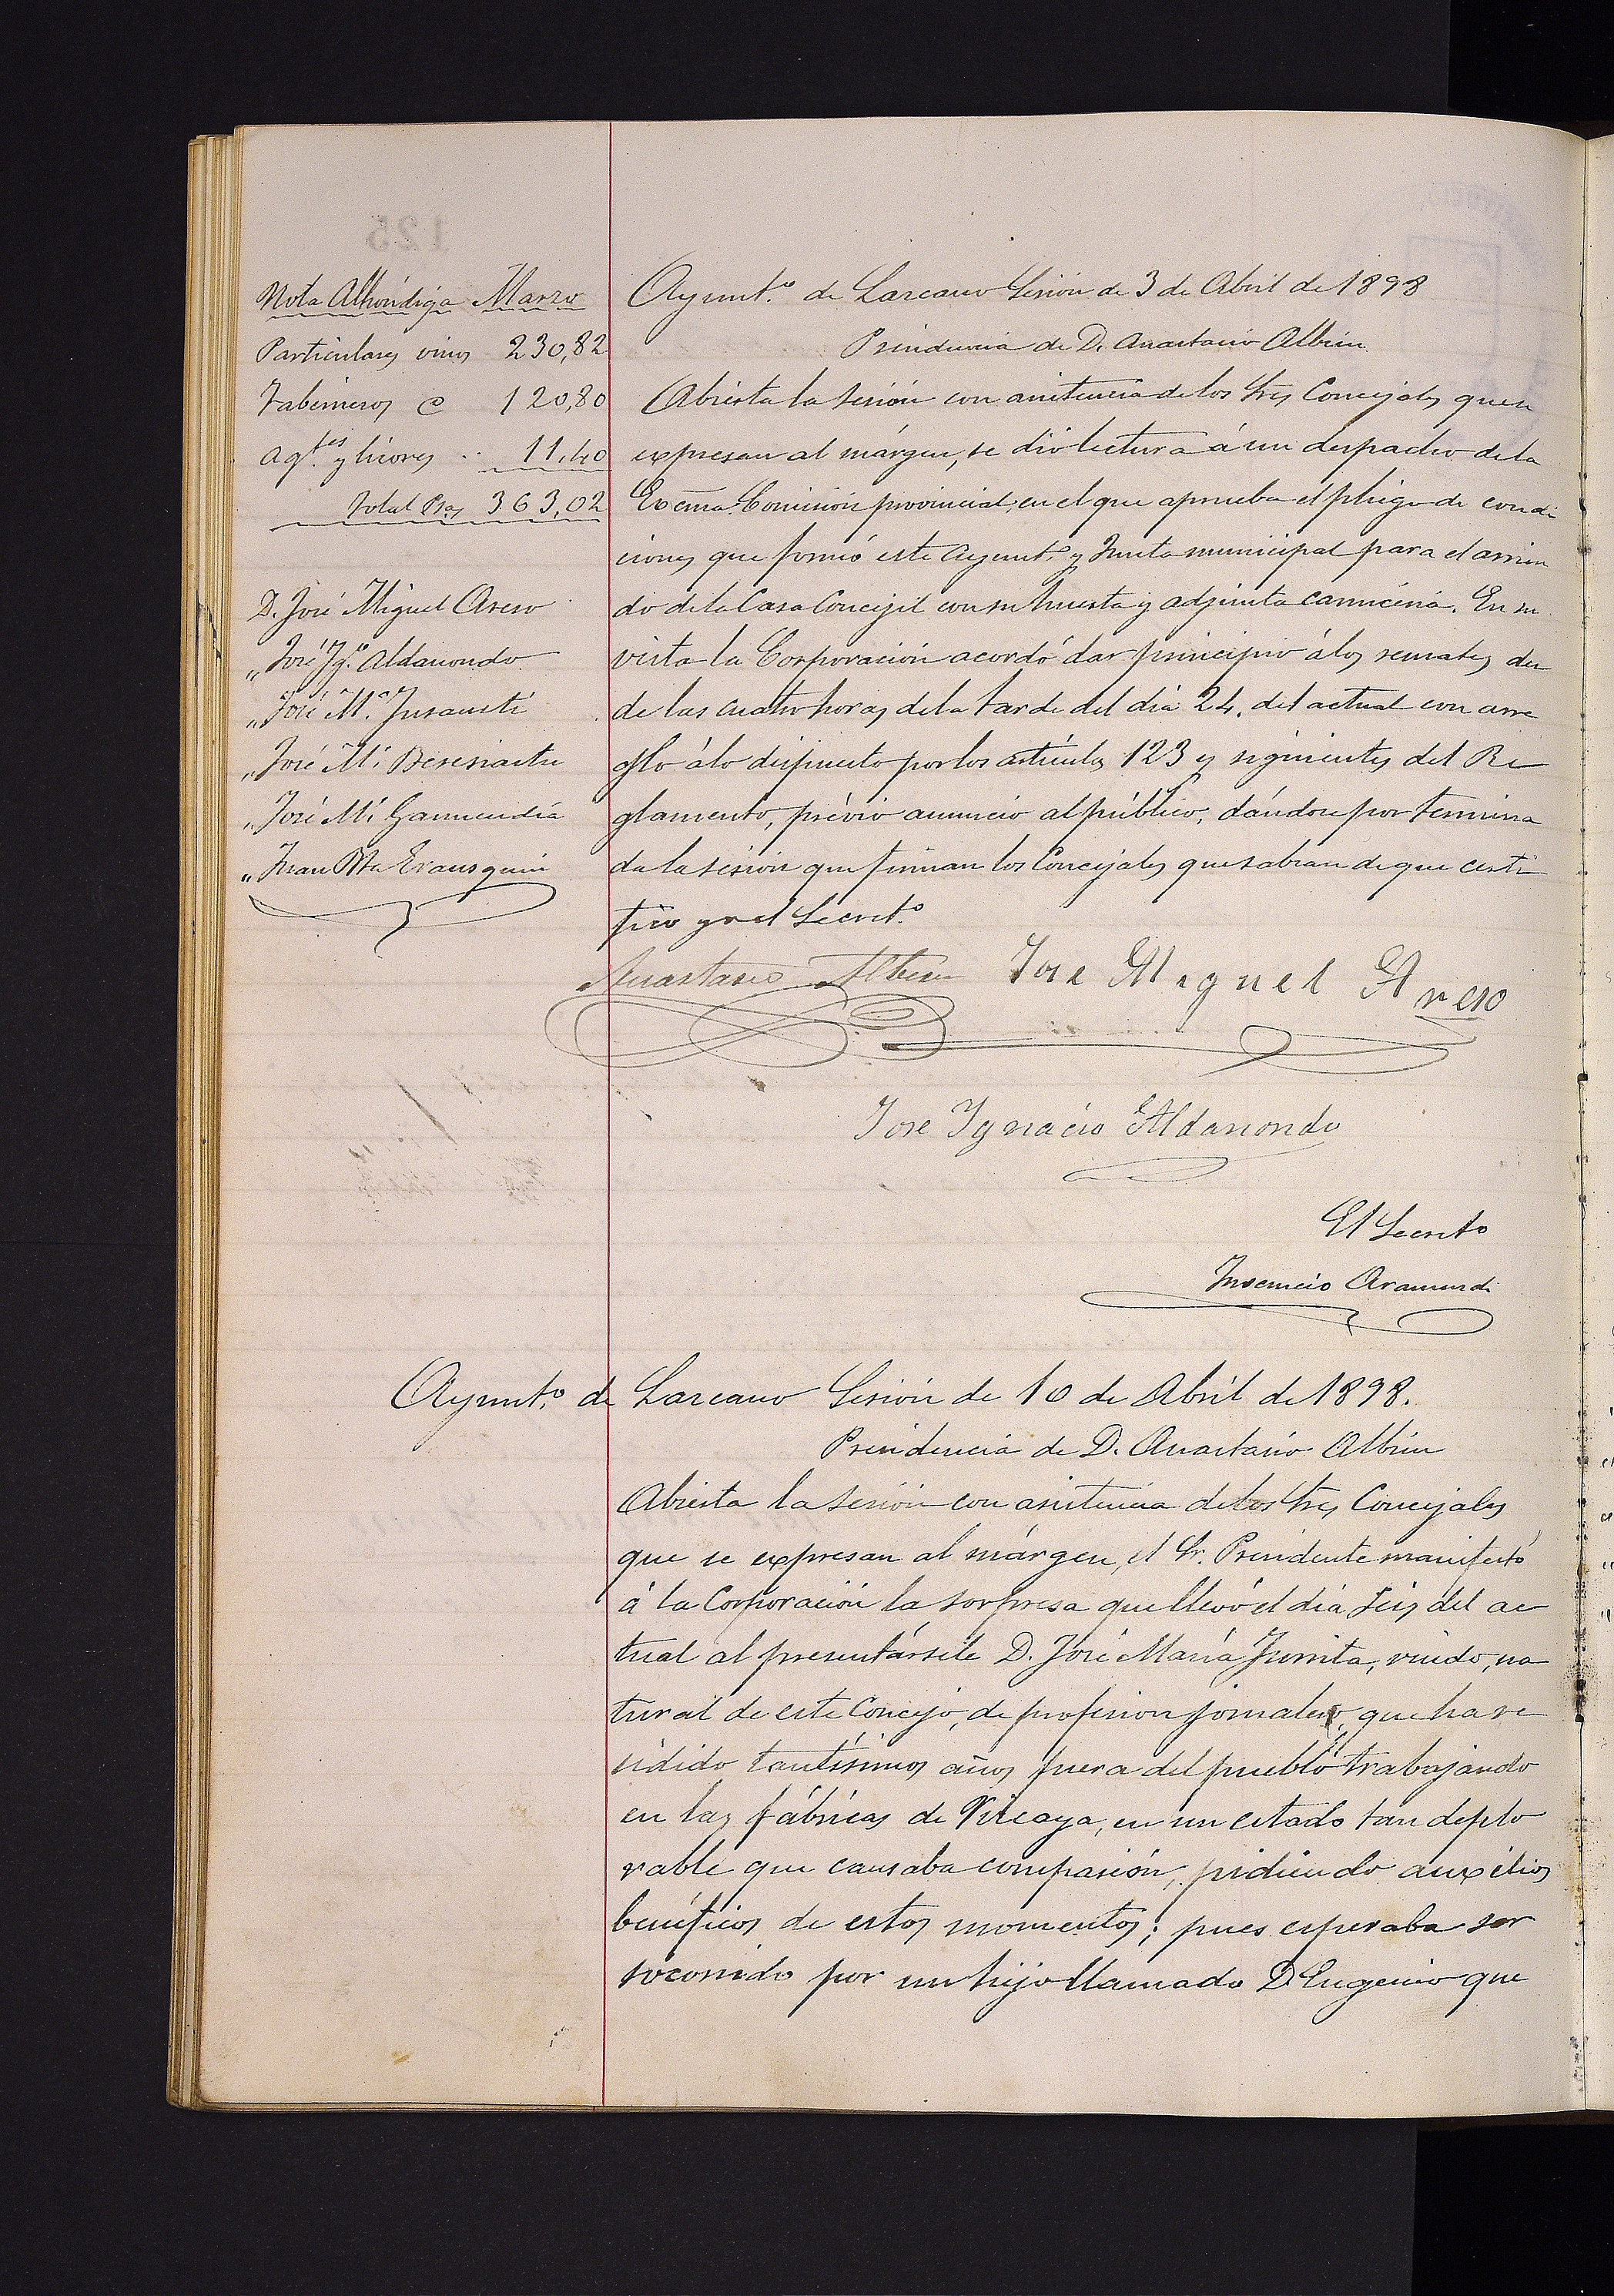 Nota Alhóndiga Marzo
Particulares vinos 230,82
Taberneros @ 120,80
Agtes. y licores .. 11,40
Total Pts 363,02
D. José Miguel Areso
„ José Igo. Aldanondo
„ José Ma. Insausti
„ José Ma. Beresiartu
„ José Ma. Garmendia
„ Juan Bta Erausquin
Ayunt.o de Lazcano Sesión de 3 de Abril de 1898
Presidencia de D. Anastasio Albisu
Abierta la sesión con asistencia de los Sres Concejales que se
expresan al márgen, se dió lectura á un despacho de la
Excma. Comisión provincial, en el que aprueba el pliego de condi
ciones que formó este Ayunto. y Junta municipal para el arrien
do de la Casa Concejil con su huerta y adjunta carnicería. En su
vista la Corporación acordó dar principio á los remates des
de las cuatro horas de la tarde del día 24. del actual con arre
glo á lo dispuesto por los artículos 123 y siguientes del Re
glamento, prévio anuncio al público, dándose por termina
da la sesión que firman los Concejales que sabran de que certi
fico yo el Secret.o
Anastasio Albisu Jose Miguel Areso
Jose Ygnacio Aldanondo
El Secreto
Inocencio Aramendi
Ayunt.o de Lazcano Sesión de 10 de Abril de 1898.
Presidencia de D. Anastasio Albisu
Abierta la sesión con asistencia de los Sres Concejales
que se expresan al márgen, el Sr. Presidente manifestó
á la Corporación la sorpresa que llevó el día seis del ac
tual al presentársele D. José María Iurrita, viudo, na
tural de este Concejo, de profesion jornalero, que ha re
sidido tantísimos años fuera del pueblo trabajando
en las fábricas de Vizcaya, en un estado tan deplo
rable que causaba compasión, pidiendo auxilios
benéficos de estos momentos; pues esperaba ser
socorrido por un hijo llamado D. Eugenio que